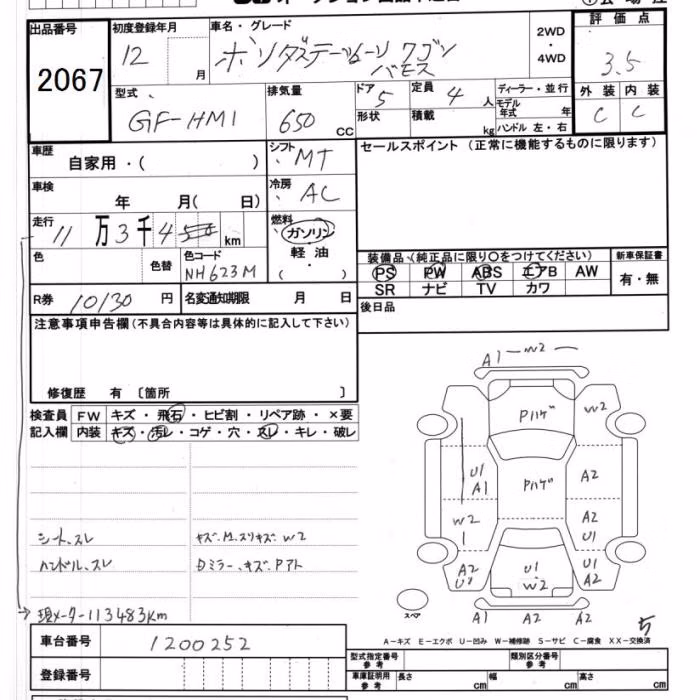 出品番号
2067
初度登録年月
12 月
車名・グレード
バモス
2WD
・
4WD
評価点
3.5
外装 内装
C C
型式
GF-HM1
排気量
650 CC
ドア
5
定員
4 人
形状
積載
kg
ディーラー・並行
モデル年式 年
ハンドル 左・右
車歴
自家用・( )
シフト
MT
セールスポイント(正常に機能するものに限ります)
車検
年 月( 日)
冷房
AC
走行
11 万 3 千 4 km
燃料
ガソリン
軽油
・
( )
色
色替
色コード
NH623M
装備品(純正品に限り○をつけてください)
PS PW ABS エアB AW
SR ナビ TV カワ
新車保証書
有・無
R券 10130 円
名変通知期限 月 日
後日品
注意事項申告欄(不具合内容等は具体的に記入して下さい)
修復歴 有 〔箇所 〕
検査員記入欄
FW キズ・飛石・ヒビ割・リペア跡・×要
内装 キズ・汚レ・コゲ・穴・スレ・キレ・破レ
シート、スレ
ハンドル、スレ
キズ、M、スリキズ、W2
Dミラー、キズ、Pアト
現メーター113483Km
A1 W2
Pハゲ
W2
U1
A1
Pハゲ
A2
W2
1
A2
U1
A2
U1
U1
W2
U1
A2
A1 A2 A2
スペア
5
A-キズ E-エクボ U-凹み W-補修跡 S-サビ C-腐食 XX-交換済
車台番号
1200252
登録番号
型式指定番号
参考
類別区分番号
参考
車庫証明用
参考
長さ cm
幅 cm
高さ cm